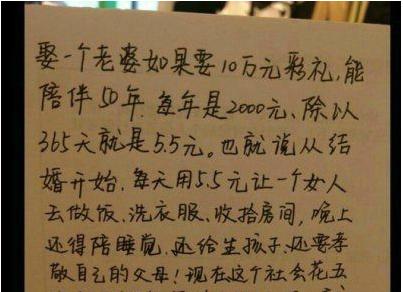 娶一个老婆如果要10万元彩礼,能
陪伴50年.每年是2000元、除以
365天就是5.5元。也就说从结
婚开始.每天用5.5元让一个女人
去做饭、洗衣服、收拾房间,晚上
还得陪睡觉.还给生孩子.还要孝
敬自己的父母!现在这个社会花五